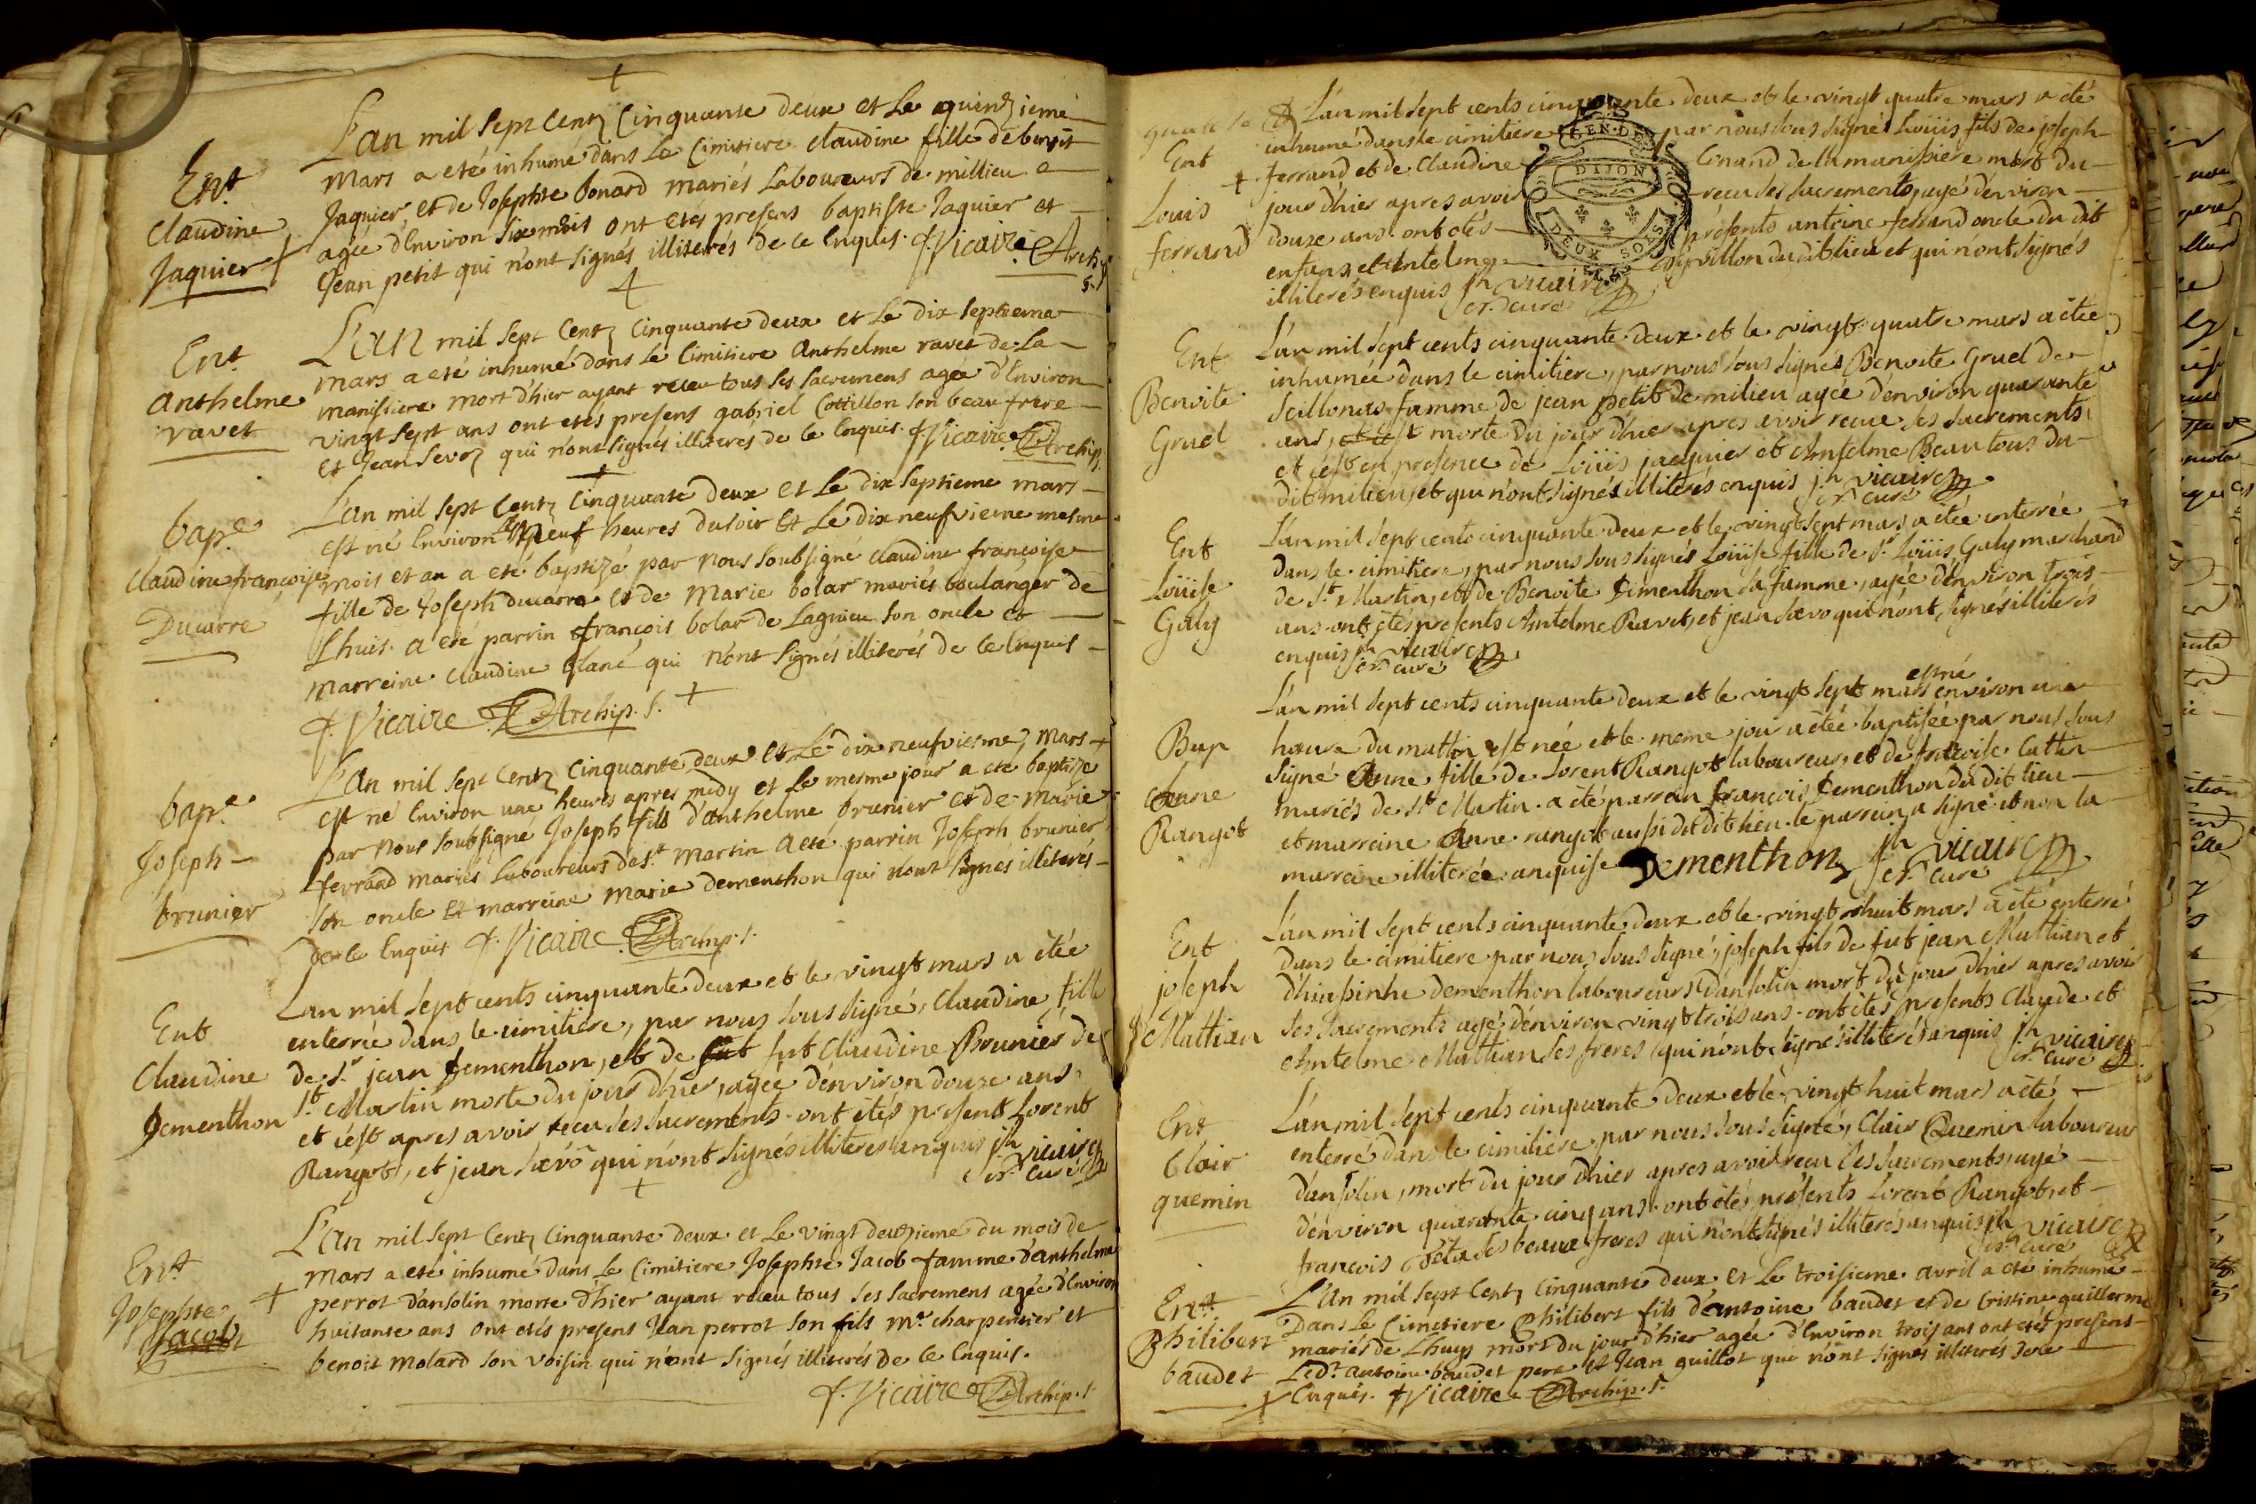 Ent.
Claudine
Jaquier
L'an mil sept centz cinquante deux et le quinzieme
mars a eté inhumé dans le cimitiere claudine fille de benoit
Jaquier, et de Josephte bonard mariés laboureurs de millieu
agée d'Environ six mois ont etés presens baptiste Jaquier et
Jean petit qui n'ont signés illiterés de ce Enquis. f. Vicaire Archip.
Ent.
anthelme
ravet
L'an mil sept centz cinquante deux et le dix septiema
mars a eté inhumé dans le cimitiere anthelme ravet de la
manissiere mort d'hier ayant receu tous ses sacremens agée d'Environ
vingt sept ans ont etés presens gabriel Cottillon son beau frere
et Jean sevoz qui n'ont signés illiterés de ce Enquis. f. Vicaire Archip.
bap.e
claudine françoise
Ducarre
L'an mil sept centz cinquante deux et le dix septieme mars
est né Environ neuf heures du soir et le dix neufvieme mesme
mois et an a eté baptizé par nous soubsigné claudine françoise
fille de Joseph ducarre et de marie bolar mariés boulanger de
Lhuis. a eté parrin françois bolar de Lagnieu son oncle et
marreine claudine blanc qui n'ont signés illiterés de ce Enquis
f. Vicaire Archip. s.
bap.e
Joseph
brunier
L'an mil sept centz cinquante deux et le dix neufviesme mars
est né Environ une heures apres midy et le mesme jour a eté baptize
par nous soubsigné Joseph fils d'anthelme brunier et de marie
ferrand mariés laboureurs de st martin a eté parrin Joseph brunier
son oncle et marreine marie dementhon qui n'ont signés illiterés
de ce Enquis f. Vicaire Archip. s.
Ent
Claudine
Dementhon
L'an mil sept cents cinquante deux et le vingt mars a étée
enterrée dans le cimitiere, par nous sous signé, Claudine fille
de sr jean Dementhon, et de fut Claudine Brunier de
st Martin morte du jour d'hier, agée d'environ douze ans
et c'est apres avoir receu ses sacrements. ont étés present Lorent
Rangot, et jean sævo qui n'ont signés illiteres anquis jh vicaire
sr curé
Ent.
Josephte
Jacob
L'an mil sept centz cinquante deux et le vingt deuxieme du mois de
mars a eté inhumé dans le cimitiere Josephte Jacob famme d'anthelme
perrot d'ansolin morte d'hier ayant receu tous ses sacremens agée d'Environ
huitante ans ont etés presens Jean perrot son fils mr charpentier et
benoit molard son voisin qui n'ont signés illiterés de ce Enquis.
f. Vicaire Archip. s.
Ent
Louis
ferrand
L'an mil sept cents cinquante deux et le vingt quatre mars a été
inhumé dans le cimitiere par nous sous signé Loüis fils de joseph
ferrand et de Claudine Conand de la manissiere mort du
jour d'hier apres avoir receu ses sacrements, agé d'environ
douze ans. ont étés présents antoine ferrand oncle du dit
enfans, et Antelme villon du dit lieu et qui n'ont signés
illiterés enquis jh vicaire
sr curé
GEN. DE
DIJON
DEUX SOLS
Ent
Benoite
Gruel
L'an mil sept cents cinquante deux et le vingt quatre mars a étée
inhumée dans le cimitiere, par nous sous signés Benoite Gruel de
Seillonas famme de jean petit de milieu agée d'environ quarante
ans, morte du jour d'hier apres avoir receue ses sacrements
et c'est en presence de Loüis jacquier et Antelme Beautous du
dit milieu, et qui n'ont signés illiterés enquis jh vicaire
sr curé
Ent
Loüise
Galy
L'an mil sept cents cinquante deux et le vingt sept mars a étée enterrée
dans le cimitiere, par nous sous signés Loüise fille de sr Loüis Galy marchand
de st Martin, et de Benoite Dimenthon sa famme, agée d'environ trois
ans. ont étés presents Antelme Ravet, et jean sævo qui n'ont signés illiterés
enquis jh vicaire
sr curé
Bap
Anne
Rangot
L'an mil sept cents cinquante deux et le vingt sept mars environ une
heure du mattin est née et le meme jour a étée baptisée par nous sous
signé Anne fille de Lorent Rangot laboureur, et de francoise Cattin
mariés de st Martin. a été parrain François Dementhon du dit lieu
et marraine Anne rangot aussi du dit lieu. le parrain a signé et non la
marraine illiterée anquise Dementhon jh vicaire
sr curé
Ent
joseph
Mattian
L'an mil sept cents cinquante deux et le vingt huit mars a été enterré
dans le cimitiere par nous sous signé, joseph fils de fut jean Mattian et
d'hiassinhe dementhon laboureurs d'ansolin mort du jour d'hier apres avoir
ses sacrements agé d'environ vingt trois ans. ont étés presents Claude et
Antelme Mattian ses freres qui n'ont signés illiterés anquis jh vicaire
sr curé
Ent
Clair
quemin
L'an mil sept cents cinquante deux et le vingt huit mars a été
enterré dans le cimitiere, par nous sous signé, Clair Quemin laboureur
d'ansolin, mort du jour d'hier apres avoir receu ses sacrements, agé
d'environ quarante cinq ans. ont étés présents Lorent Rangot et
françois ses beaux freres qui n'ont signés illiterés anquis jh vicaire
sr curé
Ent.
Philibert
baudet
L'an mil sept centz cinquante deux et le troisieme avril a eté inhumé
Dans le cimetiere Philibert fils d'antoine baudet et de Cristine guillerme
mariés de Lhuys mort du jour d'hier agée d'Environ trois ans ont etés presens
Led.t antoine baudet pere et Jean guillot qui n'ont signés illiterés de ce
Enquis. f. Vicaire Archip. s.